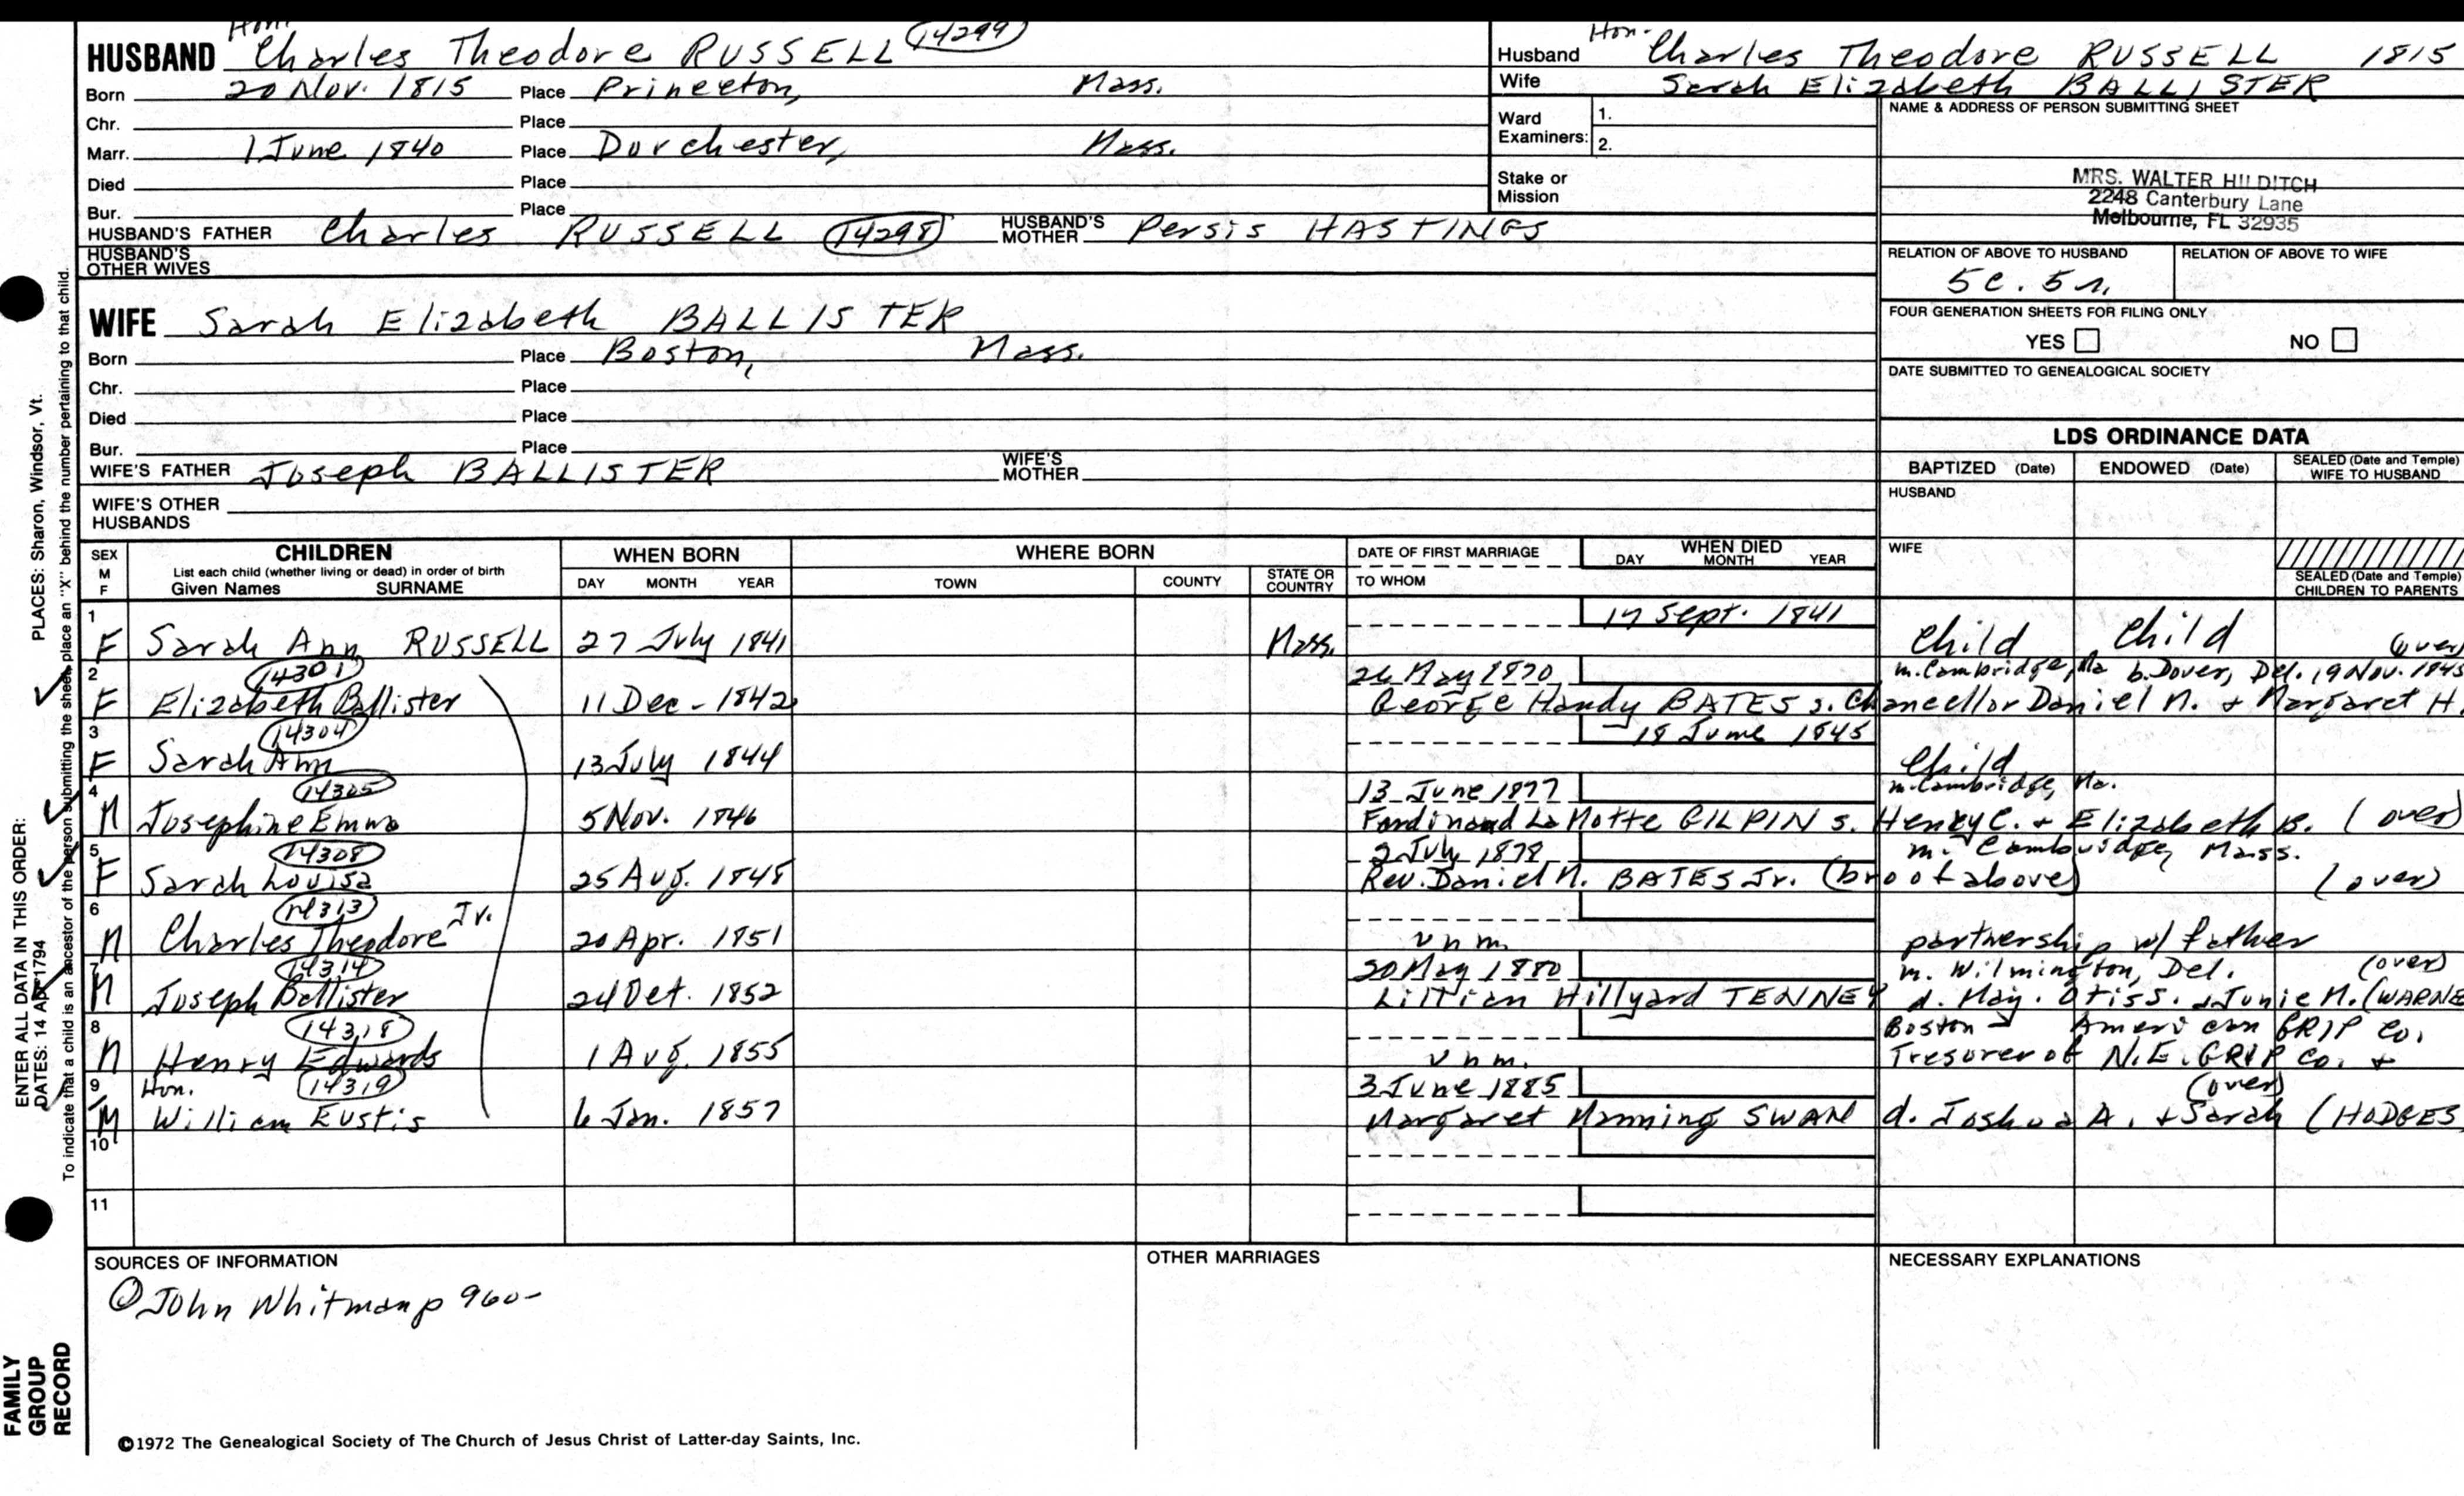 HUSBAND Hon. Charles Theodore RUSSELL 14299
Born 20 Nov. 1815 Place Princeton, Mass.
Chr. Place
Marr. 1 June 1840 Place Dorchester, Mass.
Died Place
Bur. Place
HUSBAND'S FATHER Charles RUSSELL 14298 HUSBAND'S MOTHER Persis HASTINGS
HUSBAND'S OTHER WIVES
WIFE Sarah Elizabeth BALLISTER
Born Place Boston, Mass.
Chr. Place
Died Place
Bur. Place
WIFE'S FATHER Joseph BALLISTER WIFE'S MOTHER
WIFE'S OTHER HUSBANDS
Husband Hon. Charles Theodore RUSSELL 1815
Wife Sarah Elizabeth BALLISTER
Ward Examiners: 1.
2.
Stake or Mission
NAME & ADDRESS OF PERSON SUBMITTING SHEET
MRS. WALTER HILDITCH
2248 Canterbury Lane
Melbourne, FL 32935
RELATION OF ABOVE TO HUSBAND RELATION OF ABOVE TO WIFE
5c. 5r.
FOUR GENERATION SHEETS FOR FILING ONLY
YES NO
DATE SUBMITTED TO GENEALOGICAL SOCIETY
LDS ORDINANCE DATA
BAPTIZED (Date) ENDOWED (Date) SEALED (Date and Temple) WIFE TO HUSBAND
HUSBAND
WIFE
SEALED (Date and Temple) CHILDREN TO PARENTS
SEX M F CHILDREN WHEN BORN WHERE BORN DATE OF FIRST MARRIAGE WHEN DIED
List each child (whether living or dead) in order of birth
Given Names SURNAME DAY MONTH YEAR TOWN COUNTY STATE OR COUNTRY TO WHOM DAY MONTH YEAR
1 17 Sept. 1841
F Sarah Ann RUSSELL 27 July 1841 Mass. Child Child (over)
2 14301 26 May 1870 m. Cambridge, Ma b. Dover, Del. 19 Nov. 1845
F Elizabeth Ballister 11 Dec - 1842 George Handy BATES s. Chancellor Daniel M. + Margaret H.
3 14304 18 June 1845
F Sarah Ann 13 July 1844 Child
4 14305 13 June 1877 m. Cambridge, Ma.
M Josephine Emma 5 Nov. 1846 Ferdinand La Motte GILPIN s. Henry C. + Elizabeth B. (over)
5 14308 2 July 1878 m. Cambridge, Mass.
F Sarah Louisa 25 Aug. 1848 Rev. Daniel M. BATES Jr. (bro of above) (over)
6 14313
M Charles Theodore Jr. 20 Apr. 1851 unm. partnership w/ father
7 14314 20 May 1880 m. Wilmington, Del. (over)
M Joseph Ballister 24 Oct. 1852 Lillian Hillyard TENNEY d. Maj. Otis S. + Junie M. (WARNE
8 14318 Boston American GRIP Co.
M Henry Edwards 1 Aug. 1855 unm. Tresurer of N.E. GRIP Co. +
9 Hon. 14319 3 June 1885 (over)
M William Eustis 6 Jan. 1857 Margaret Manning SWAN d. Joshua A. + Sarah (HODGES
10
11
SOURCES OF INFORMATION OTHER MARRIAGES NECESSARY EXPLANATIONS
① John Whitman p 960-
©1972 The Genealogical Society of The Church of Jesus Christ of Latter-day Saints, Inc.
FAMILY GROUP RECORD
ENTER ALL DATA IN THIS ORDER:
DATES: 14 Apr 1794 PLACES: Sharon, Windsor, Vt.
To indicate that a child is an ancestor of the person submitting the sheet, place an "X" behind the number pertaining to that child.